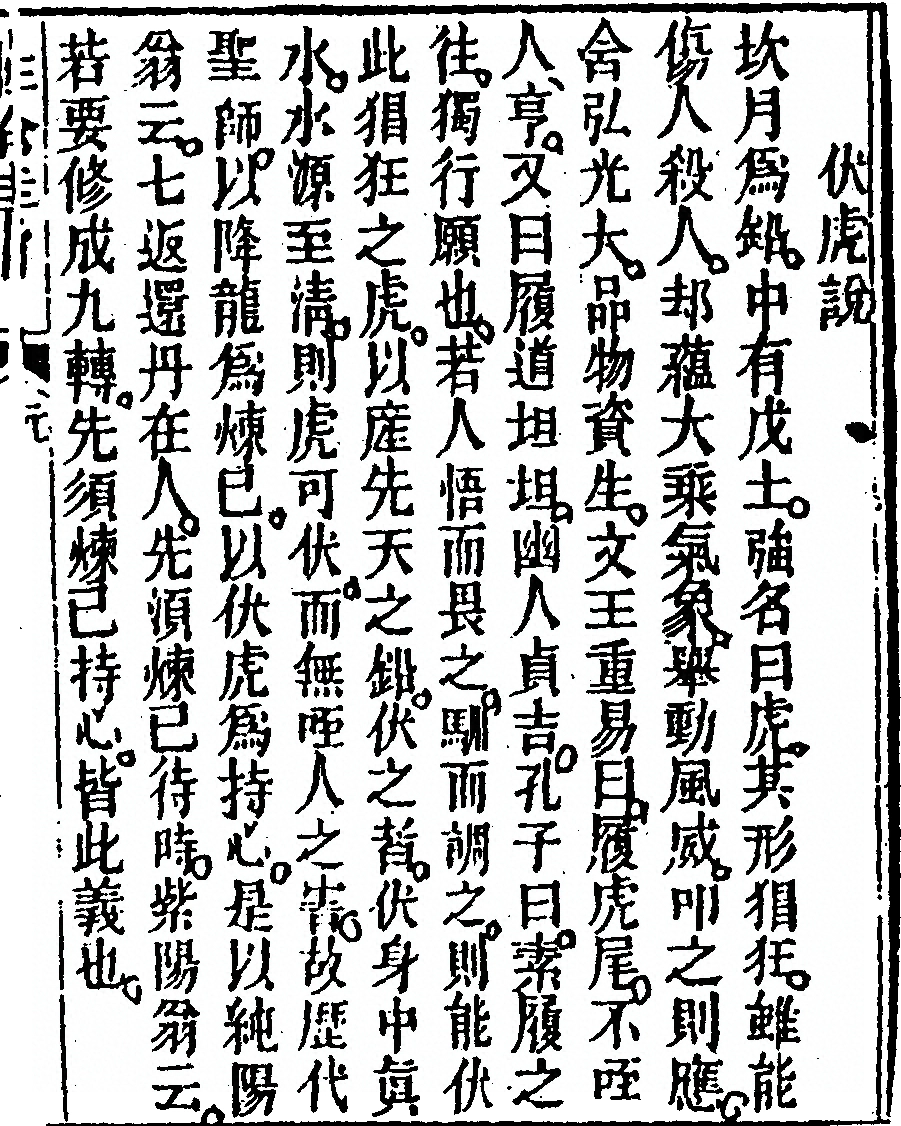 伏虎說
坎月爲鉛。中有戊土。強名曰虎。其形猖狂。雖能
傷人殺人。却蘊大乘氣象。舉動風威。叩之則應。
含弘光大。品物資生。文王重易曰。履虎尾。不咥
人、亨。又曰履道坦坦。幽人貞吉。孔子曰。素履之
往。獨行願也。若人悟而畏之。馴而調之。則能伏
此猖狂之虎。以産先天之鉛。伏之者。伏身中眞
水。水源至清。則虎可伏。而無咥人之害。故歷代
聖師。以降龍爲煉己。以伏虎爲持心。是以純陽
翁云。七返還丹在人。先須煉己待時。紫陽翁云。
若要修成九轉。先須煉己持心。皆此義也。